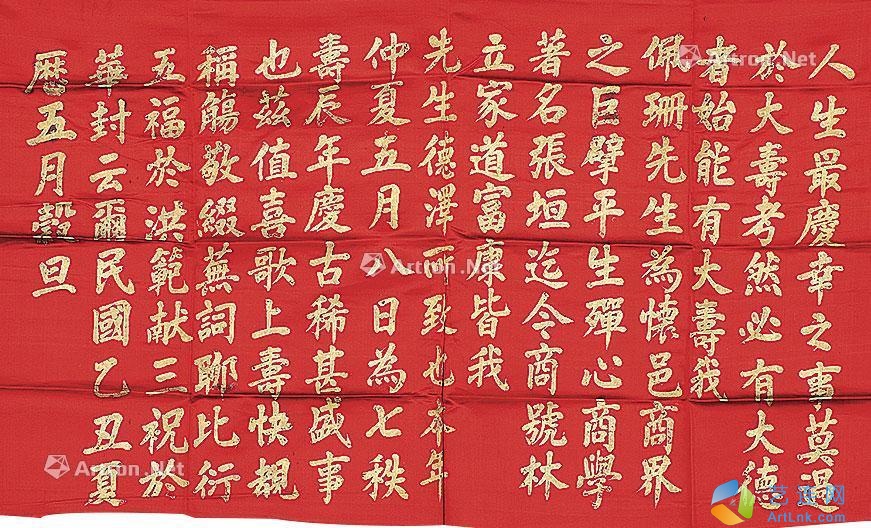 人生最慶幸之事莫過
於大壽考然必有大德
者始能有大壽我
佩珊先生為懷邑商界
之巨擘平生殫心商學
著名張垣迄今商號林
立家道富康皆我
先生德澤所致也本年
仲夏五月八日為七秩
壽辰年慶古稀甚盛事
也茲值喜歌上壽快覩
稱觴敬綴蕪詞聊比行
五福於洪範献三祝於
華封云爾民國乙丑夏
曆五月穀旦
Artron.Net
Artron.Net
Artron.Net
Artron.Net
艺连网
ArtLnk.com